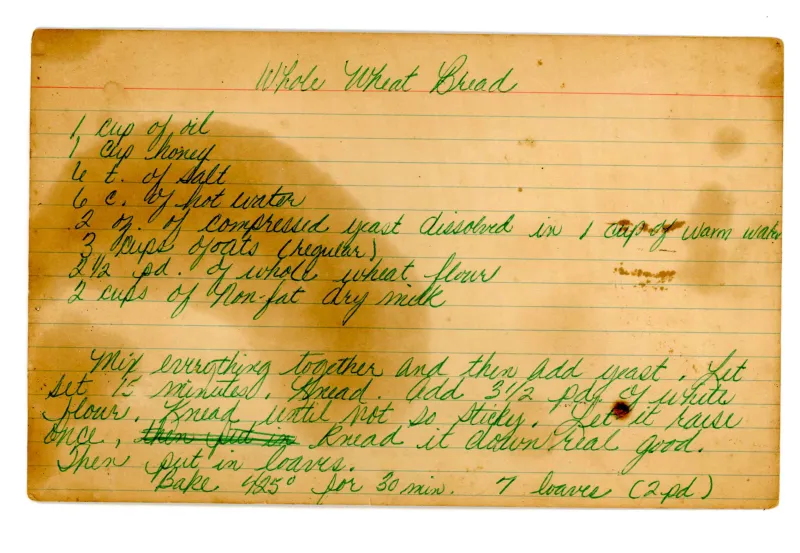 Whole Wheat Bread
1 cup of oil
1 cup honey
6 t. of salt
6 c. of hot water
2 oz. of compressed yeast dissolved in 1 cup of warm water
3 cups of oats (regular)
2 1/2 pd. of whole wheat flour
2 cups of Non-fat dry milk
Mix everything together and then add yeast. Let
set 15 minutes. Knead. add 3 1/2 pds of white
flour. Knead until not so sticky. Let it raise
once, then put in knead it down real good.
Then put in loaves.
Bake 425° for 30 min. 7 loaves (2 pd)